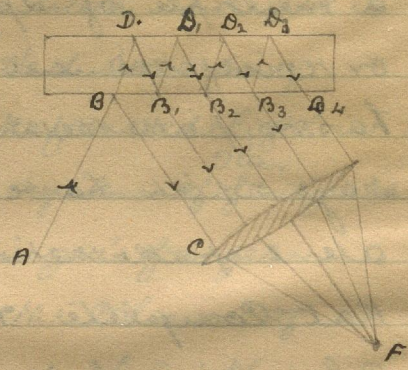 D. D1 D2 D3
B B1 B2 B3 B4
A
C
F